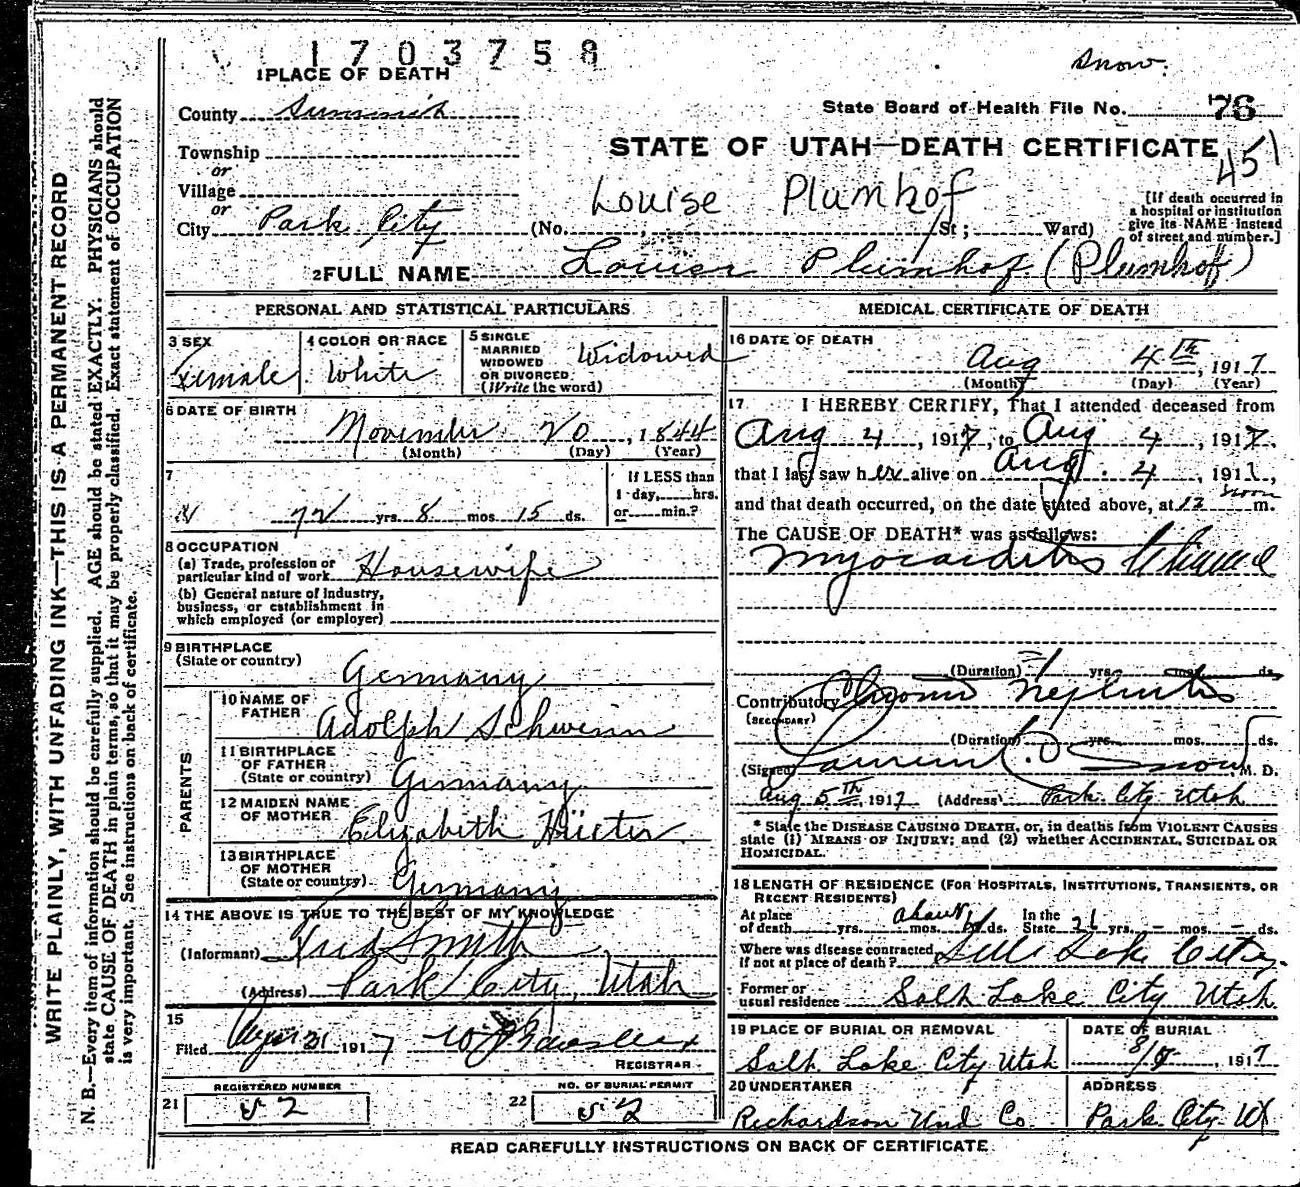 1703758
Snow.
1 PLACE OF DEATH
County Summit
State Board of Health File No. 76
451
STATE OF UTAH—DEATH CERTIFICATE
Township
or
Village
or
City Park City
Louise Plumhof
(No. , St; Ward)
[If death occurred in
a hospital or institution
give its NAME instead
of street and number.]
2 FULL NAME Louise Plumhof (Plumhoff)
PERSONAL AND STATISTICAL PARTICULARS
3 SEX
Female
4 COLOR OR RACE
White
5 SINGLE
MARRIED
WIDOWED
OR DIVORCED
(Write the word)
Widowed
6 DATE OF BIRTH
November 20, 1844
(Month) (Day) (Year)
7
72 yrs. 8 mos. 15 ds.
If LESS than
1 day, hrs.
or min.?
8 OCCUPATION
(a) Trade, profession or
particular kind of work Housewife
(b) General nature of industry,
business, or establishment in
which employed (or employer)
9 BIRTHPLACE
(State or country)
Germany
PARENTS
10 NAME OF
FATHER
Adolph Schwein
11 BIRTHPLACE
OF FATHER
(State or country)
Germany
12 MAIDEN NAME
OF MOTHER
Elizabeth
13 BIRTHPLACE
OF MOTHER
(State or country)
Germany
14 THE ABOVE IS TRUE TO THE BEST OF MY KNOWLEDGE
(Informant) Fred Smith
(Address) Park City, Utah
15
Filed 1917
REGISTRAR
REGISTERED NUMBER
21 52
NO. OF BURIAL PERMIT
22 52
MEDICAL CERTIFICATE OF DEATH
16 DATE OF DEATH
Aug 4th, 1917
(Month) (Day) (Year)
17 I HEREBY CERTIFY, That I attended deceased from
Aug 4, 1917, to Aug 4, 1917,
that I last saw her alive on Aug. 4, 191 ,
and that death occurred, on the date stated above, at 12 noon m.
The CAUSE OF DEATH* was as follows:
Myocarditis
(Duration) 1 yrs. mos. ds.
Contributory Chronic Nephritis
(SECONDARY)
(Duration) yrs. mos. ds.
(Signed) Snow, M. D.
Aug 5th, 1917 (Address) Park City Utah
* State the DISEASE CAUSING DEATH, or, in deaths from VIOLENT CAUSES
state (1) MEANS OF INJURY; and (2) whether ACCIDENTAL, SUICIDAL OR
HOMICIDAL.
18 LENGTH OF RESIDENCE (FOR HOSPITALS, INSTITUTIONS, TRANSIENTS, OR
RECENT RESIDENTS)
At place
of death yrs. about mos. ds. In the
State 26 yrs. – mos. – ds.
Where was disease contracted
If not at place of death? Salt Lake City.
Former or
usual residence Salt Lake City Utah
19 PLACE OF BURIAL OR REMOVAL
Salt Lake City Utah
DATE OF BURIAL
8/ , 1917
20 UNDERTAKER
Richardson Und Co.
ADDRESS
Park City Ut
READ CAREFULLY INSTRUCTIONS ON BACK OF CERTIFICATE
WRITE PLAINLY, WITH UNFADING INK—THIS IS A PERMANENT RECORD
N. B.—Every item of information should be carefully supplied. AGE should be stated EXACTLY. PHYSICIANS should
state CAUSE OF DEATH in plain terms, so that it may be properly classified. Exact statement of OCCUPATION
is very important. See instructions on back of certificate.